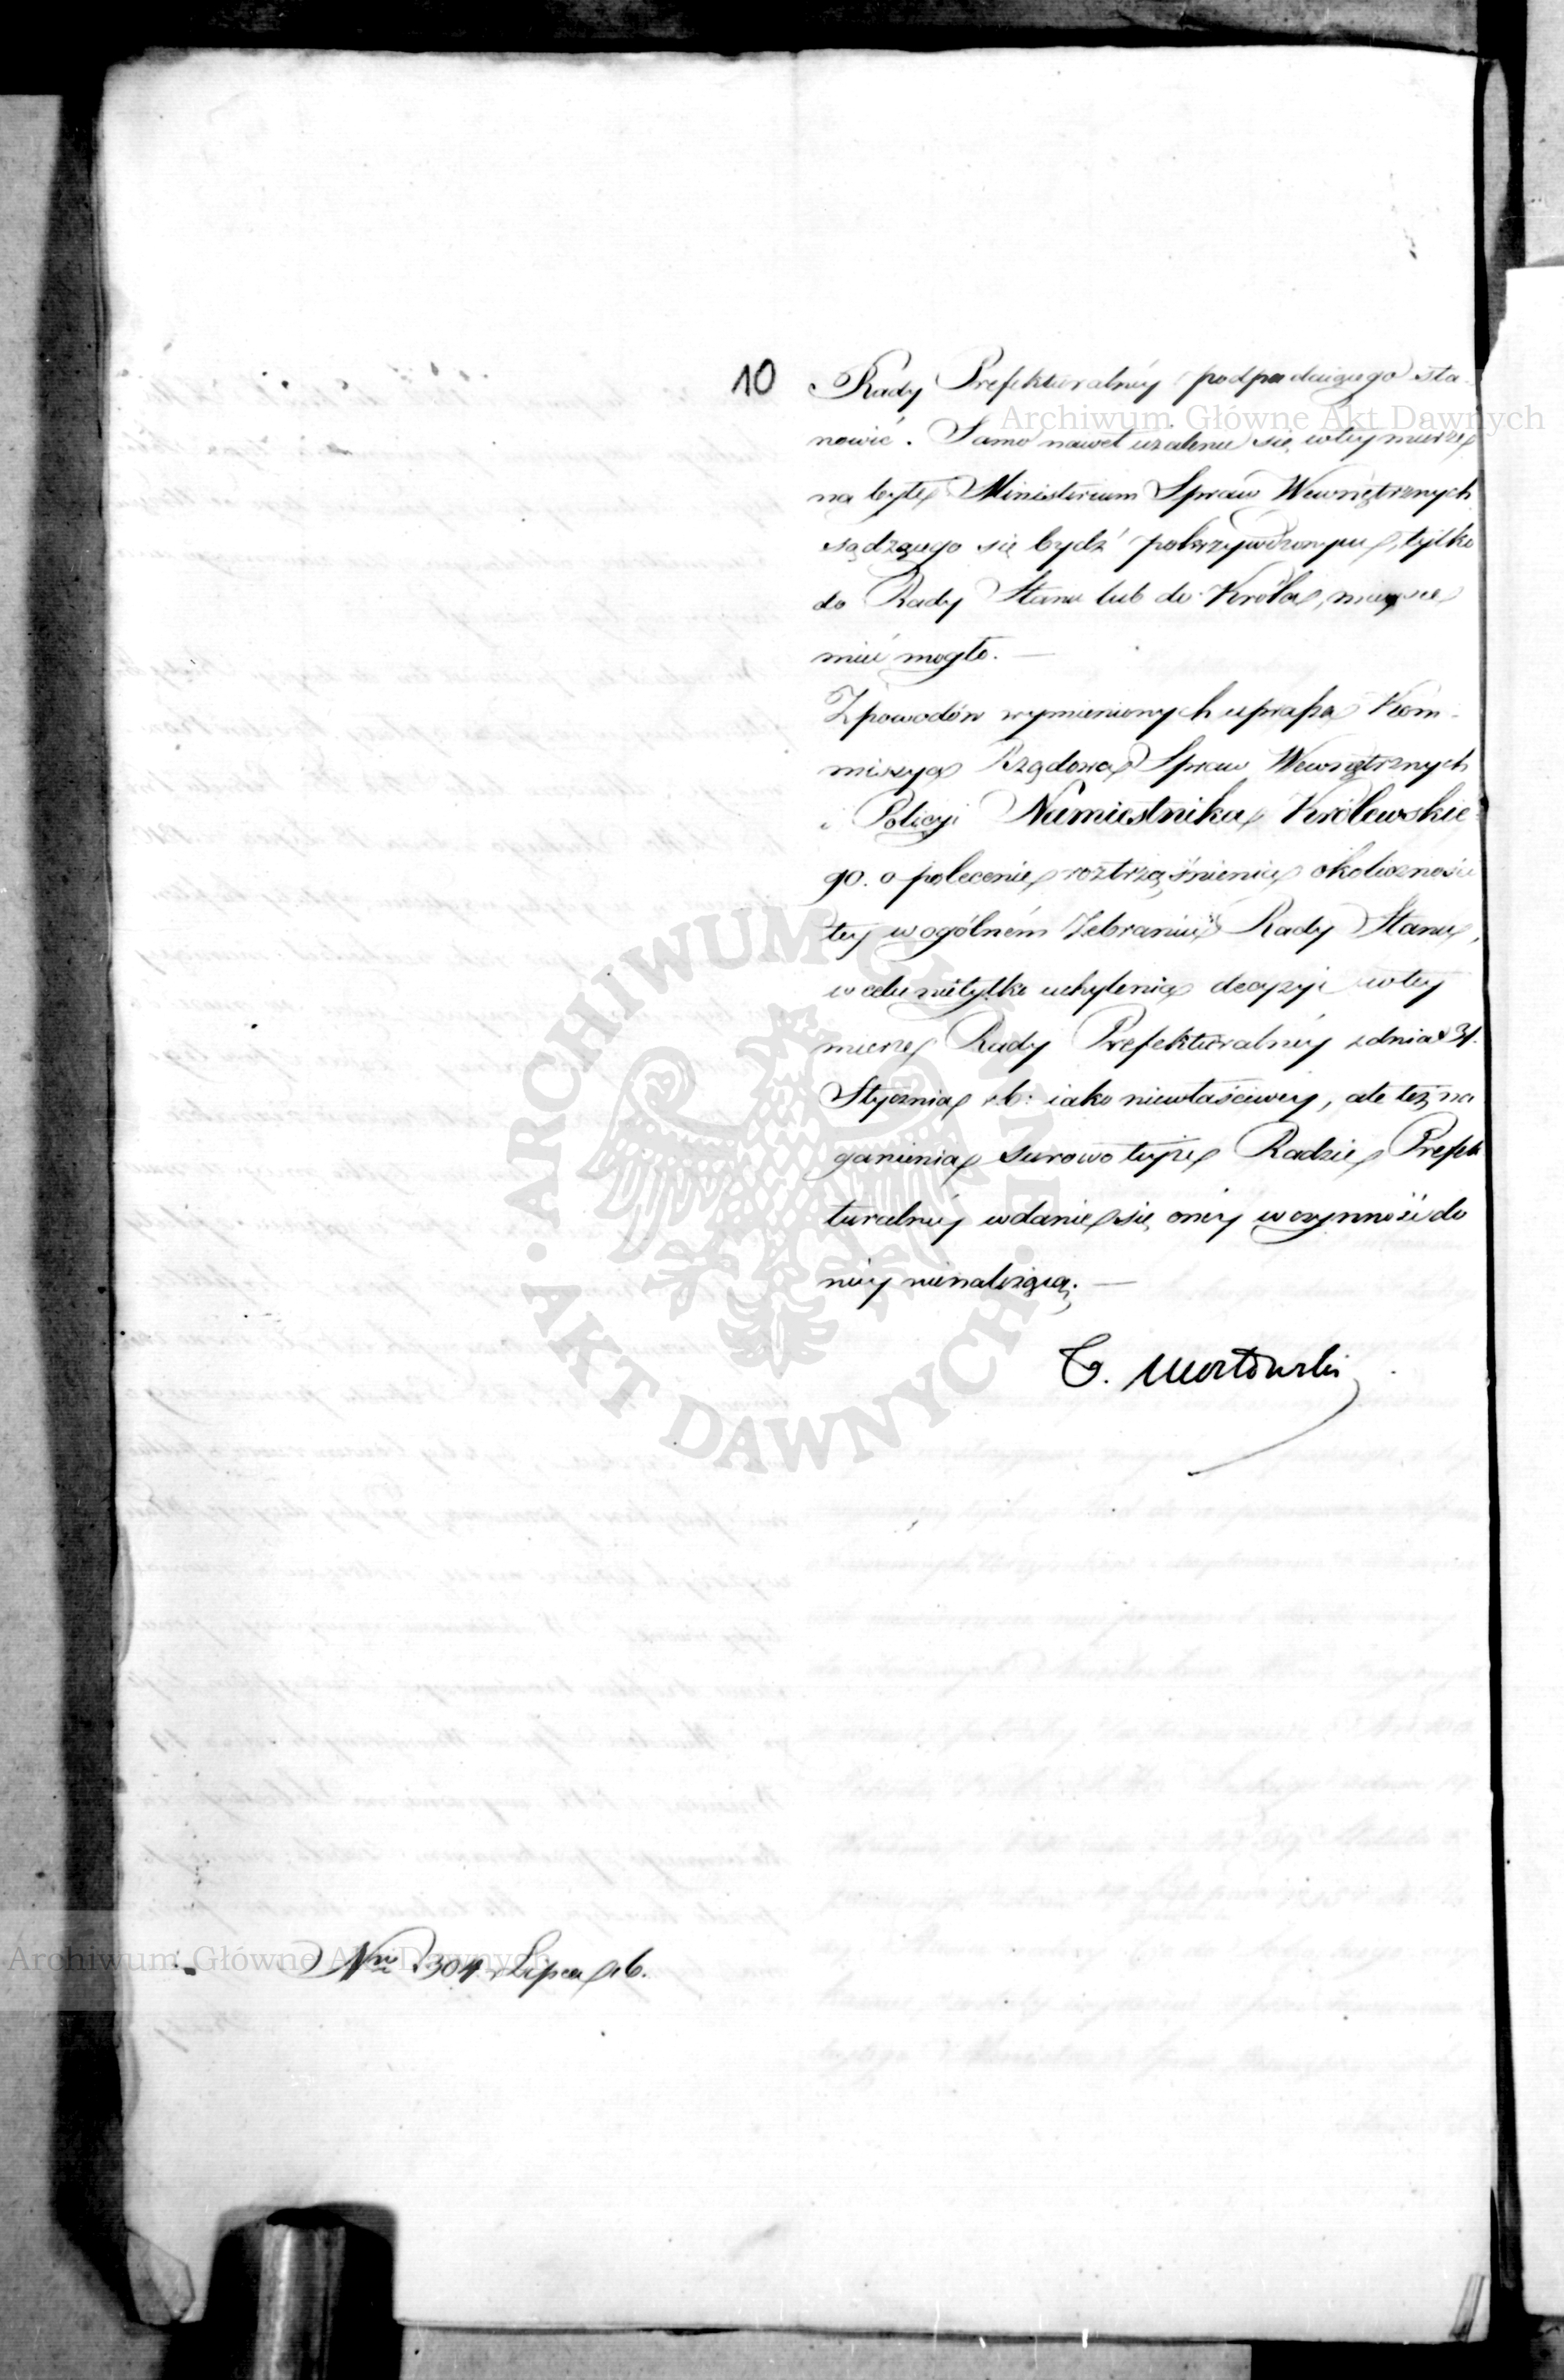 10
Rady Prefekturalnéy podpadaiącego sta-
nowić. Samo nawet użalenie się w tey mierze
na byłe Ministerium Spraw Wewnętrznych
sądzącego się bydź pokrzywdzonym, tylko
do Rady Stanu lub do Króla, mieysce
mieć mogło. —
Z powodów wymienionych uprasza Kom-
missya Rządowa Spraw Wewnętrznych
i Policyi Namiestnika Królewskie-
go o polecenie roztrząśnienia okoliczności
tey w ogólném Zebraniu Rady Stanu,
w celu nietylko uchylenia decyzyi w tey
mierze Rady Prefekturalnéy z dnia 31.
Stycznia r.b: iako niewłaściwey, ale też na
ganienia surowo teyże Radzie Prefek
turalnéy wdanie się oney w czynność do
niéy nienależącą. —
T. Mostowski
Nro 304 Lipca 16.
Archiwum Główne Akt Dawnych
Archiwum Główne Akt Dawnych
ARCHIWUM GŁÓWNE · AKT DAWNYCH ·